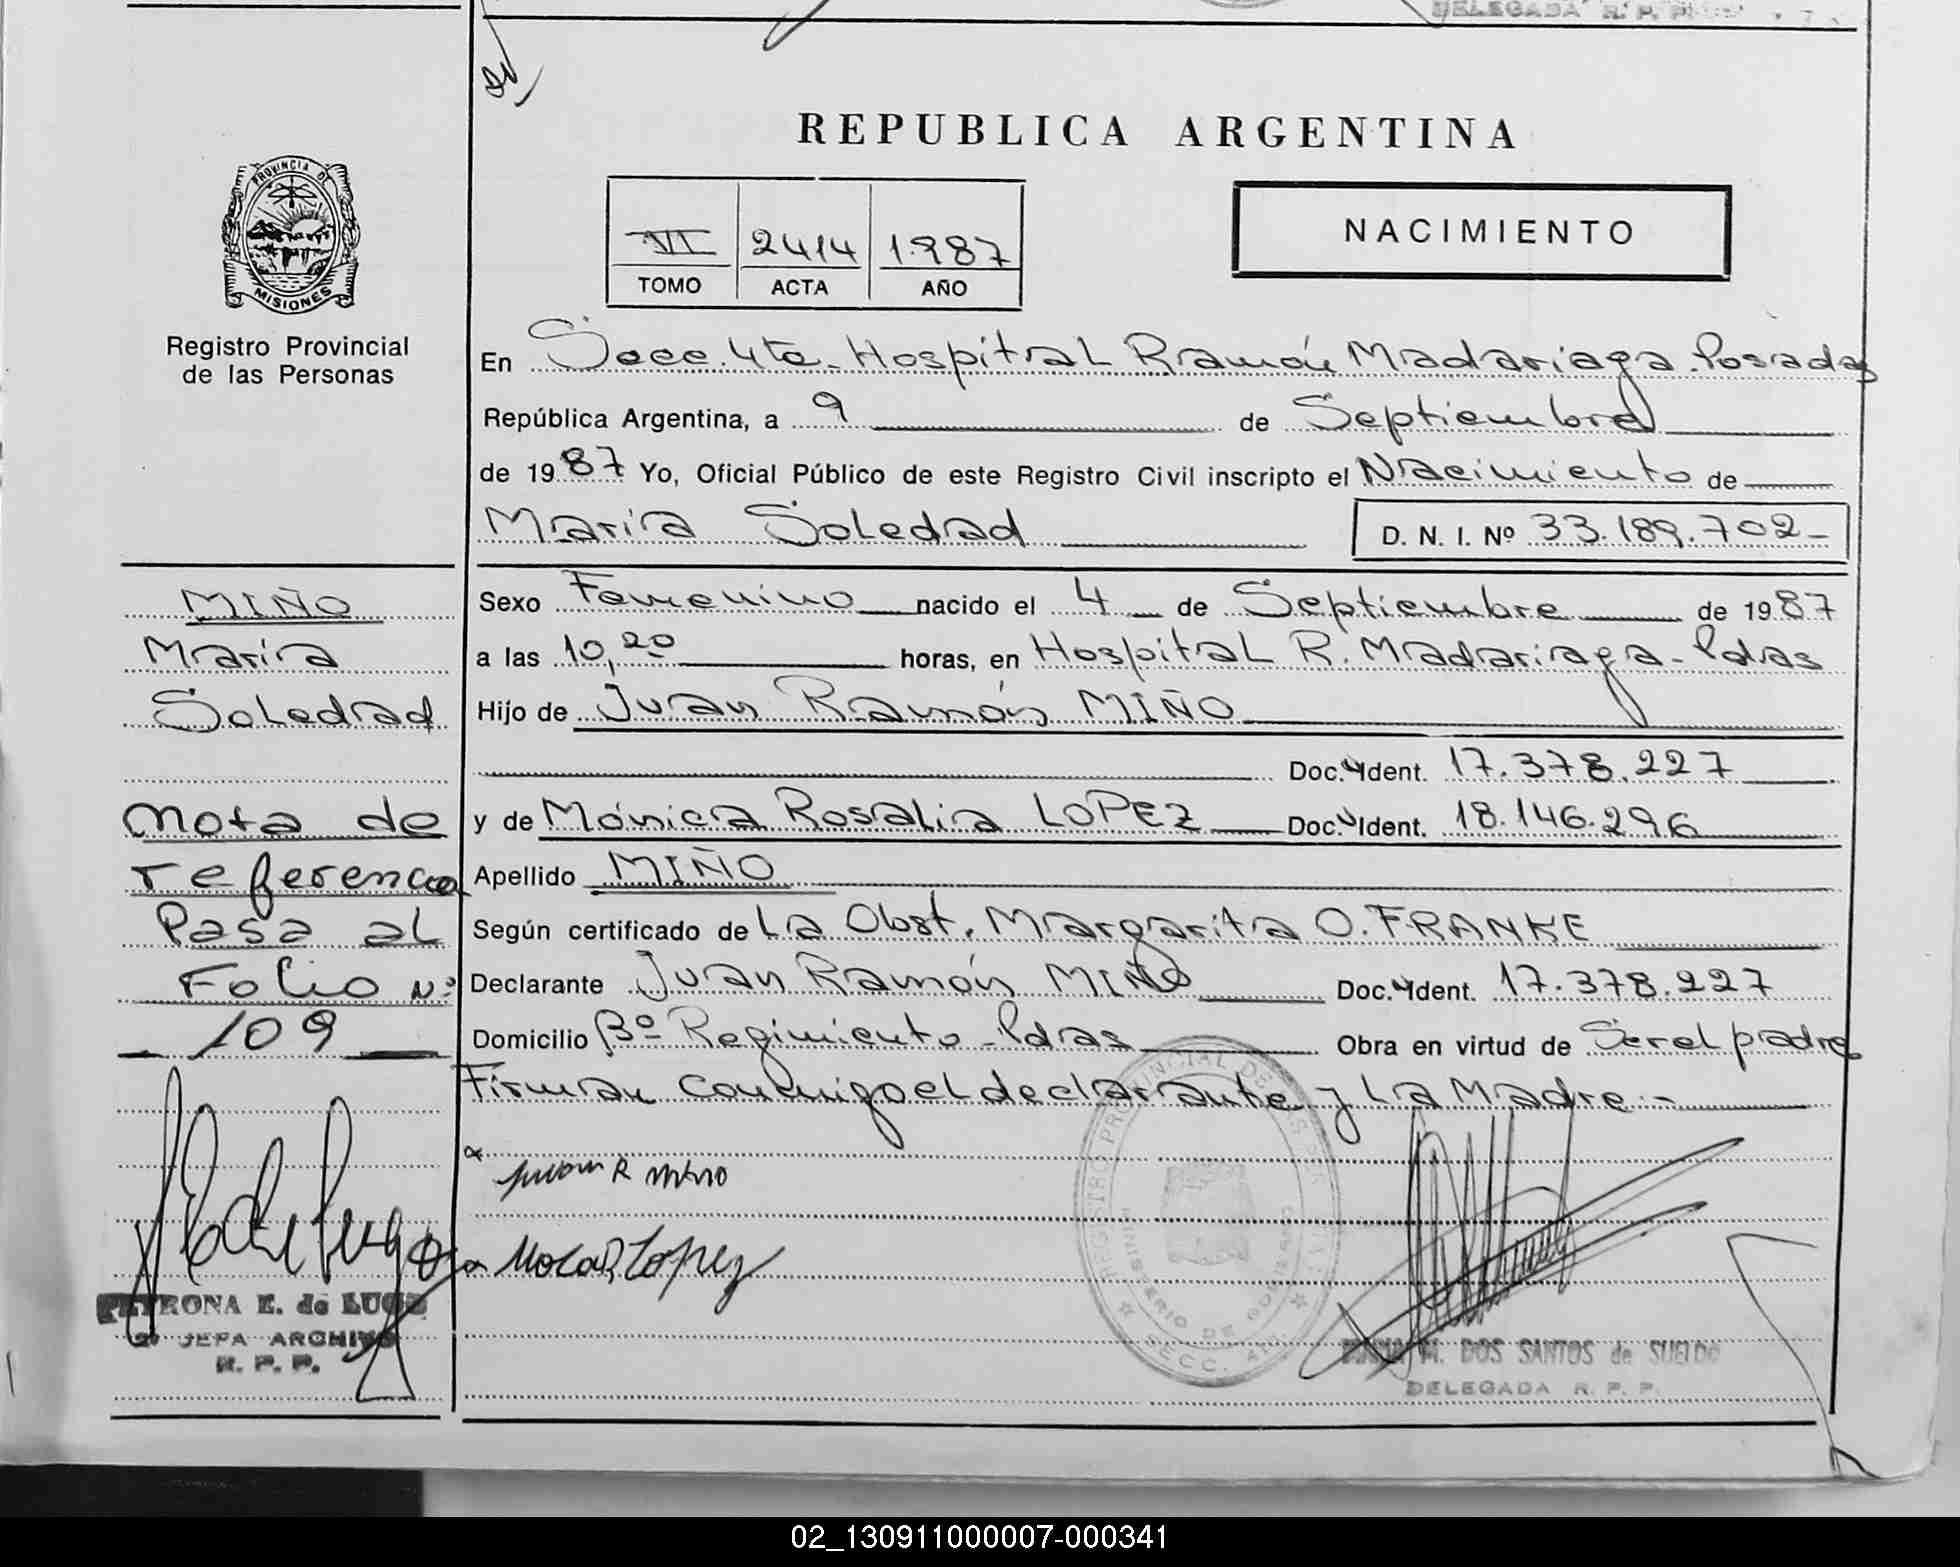 DELEGADA R. P. P.
REPUBLICA ARGENTINA
PROVINCIA DE
MISIONES
Registro Provincial
de las Personas
VI 2414 1.987
TOMO ACTA AÑO
NACIMIENTO
En Secc. 4ta. Hospital Ramón Madariaga. Posadas
República Argentina, a 9 de Septiembre
de 1987 Yo, Oficial Público de este Registro Civil inscripto el Nacimiento de
María Soledad D. N. I. Nº 33.189.702-
Sexo Femenino nacido el 4 de Septiembre de 1987
a las 10,20 horas, en Hospital R. Madariaga - Pdas
Hijo de Juan Ramón MIÑO
Doc. Ident. 17.378.227
y de Mónica Rosalia LOPEZ Doc. Ident. 18.146.296
Apellido MIÑO
Según certificado de La Obst. Margarita O. FRANKE
Declarante Juan Ramón MIÑO Doc. Ident. 17.378.227
Domicilio Bº Regimiento - Pdas Obra en virtud de Ser el padre
Firman conmigo el declarante y La Madre.-
Juan R miño
Lopez
REGISTRO PROVINCIAL DE LAS PERSONAS
MINISTERIO DE GOBIERNO
SECC. 4ta
M. DOS SANTOS de SUELDO
DELEGADA R. P. P.
MIÑO
María
Soledad
Nota de
referencia
Pasa al
Folio Nº
109
PETRONA E. de LUGO
JEFA ARCHIVO
R. P. P.
02_130911000007-000341